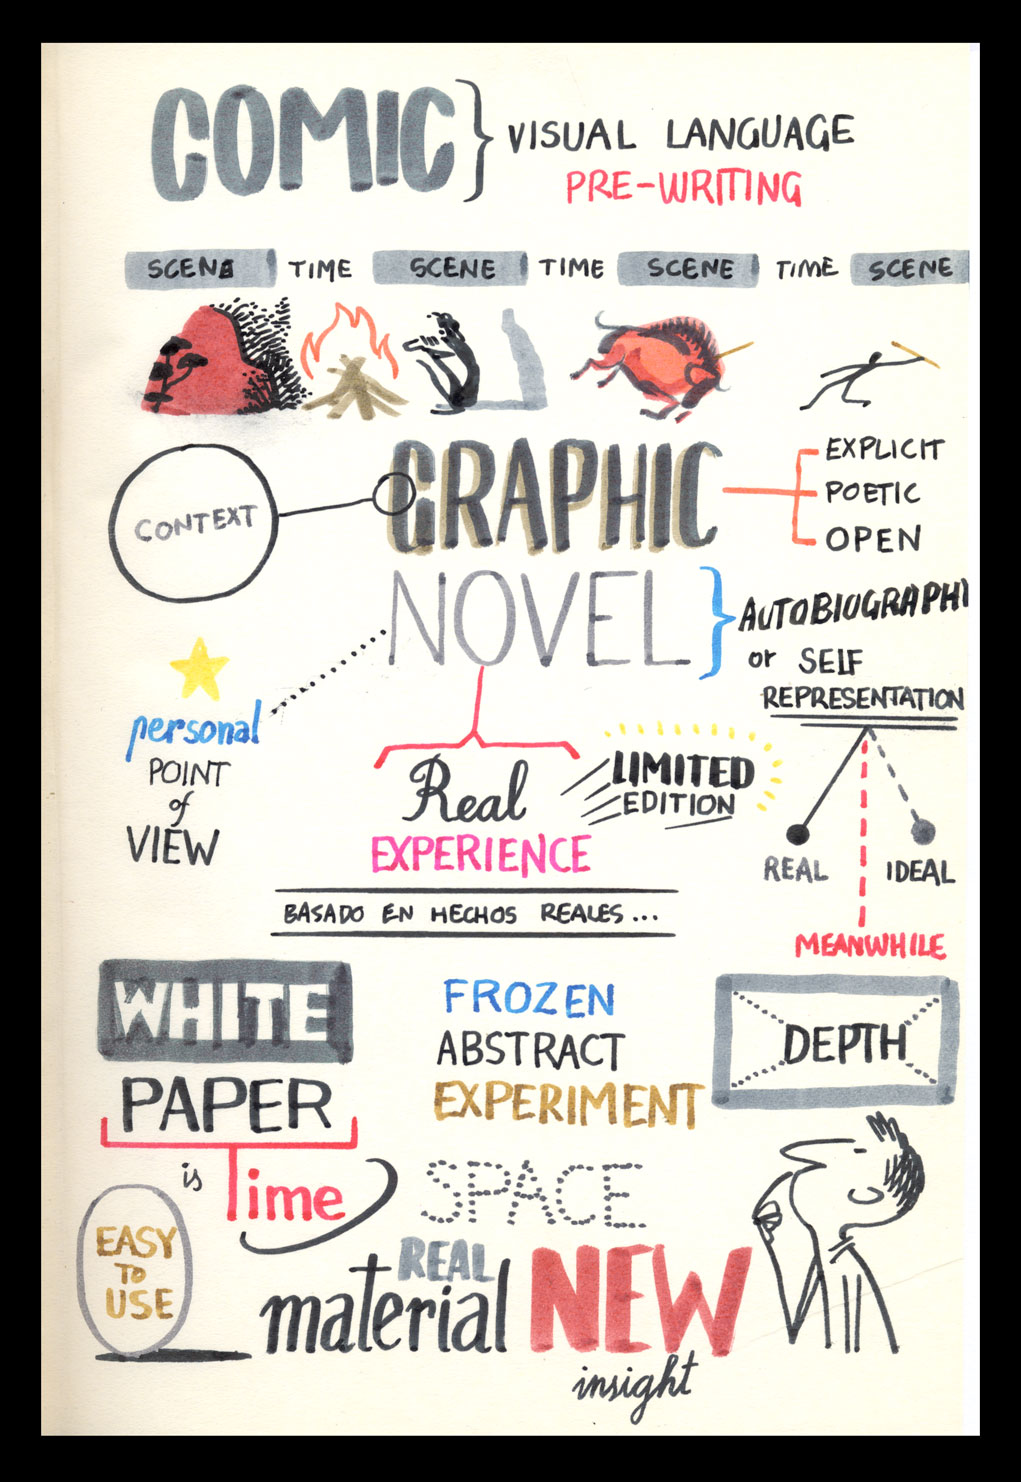 COMIC } VISUAL LANGUAGE
PRE-WRITING
SCENE TIME SCENE TIME SCENE TIME SCENE
CONTEXT
GRAPHIC
EXPLICIT
POETIC
OPEN
NOVEL } AUTOBIOGRAPHI
or SELF
REPRESENTATION
personal
POINT
of
VIEW
Real
EXPERIENCE
LIMITED
EDITION
REAL IDEAL
MEANWHILE
BASADO EN HECHOS REALES...
WHITE
PAPER
is Time
FROZEN
ABSTRACT
EXPERIMENT
DEPTH
SPACE
EASY
TO
USE
REAL
material NEW
insight